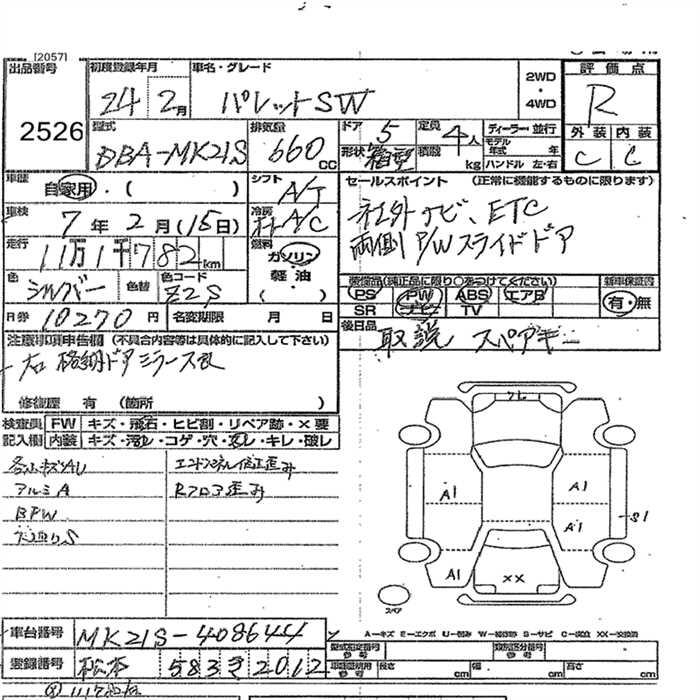 [2057]
出品番号 初度登録年月 車名・グレード 2WD・4WD 評価点
2526 24 2月 パレットSW R
型式 排気量 ドア 5 定員 4人 ディーラー・並行 外装 内装
DBA-MK21S 660cc 形状 箱型 積載 kg モデル年式 年 ハンドル 左・右 C C
車歴 自家用・( ) シフト A/T セールスポイント (正常に機能するものに限ります)
車検 7年2月(15日) 冷房 A/C 社外ナビ、ETC
走行 11万1千782km 燃料 ガソリン・軽油・( ) 両側P/Wスライドドア
色 シルバー 色替 色コード Z2S
装備品(純正品に限り○をつけてください) 新車保証書
PS PW ABS エアB 有・無
SR ナビ TV
R券 10270円 名変期限 月 日 後日品 取説 スペアキー
注意事項申告欄 (不具合内容等は具体的に記入して下さい)
右格納ドアミラー
修復歴 有 (箇所 )
検査員記入欄 FW キズ・飛石・ヒビ割・リペア跡・×要
内装 キズ・汚レ・コゲ・穴・変レ・キレ・破レ
アルミA Rフロア歪み
BPW
A1 A1
A1 S1
A1 XX
スペア
A-キズ E-エクボ U-凹み W-補修跡 S-サビ C-腐食 XX-交換済
車台番号 MK21S-408644
型式指定番号 参考 類別区分番号 参考
登録番号 松本 583 き 2012
車庫証明用 参考 長さ cm 幅 cm 高さ cm